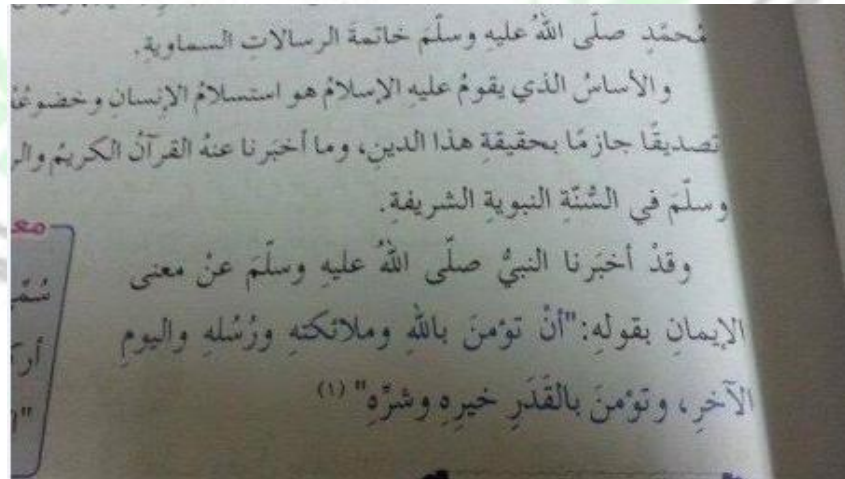 مُحمَّدٍ صلَّى اللهُ عليهِ وسلَّمَ خاتمةَ الرسالاتِ السماويةِ.
والأساسُ الذي يقومُ عليهِ الإسلامُ هو استسلامُ الإنسانِ وخضوعُهُ
تصديقًا جازمًا بحقيقةِ هذا الدينِ، وما أخبَرنا عنهُ القرآنُ الكريمُ
وسلَّمَ في السُّنَّةِ النبويةِ الشريفةِ.
وقدْ أخبَرنا النبيُّ صلَّى اللهُ عليهِ وسلَّمَ عنْ معنى
الإيمانِ بقولهِ: "أنْ تؤمنَ باللهِ وملائكتهِ ورُسُلهِ واليومِ
الآخرِ، وتؤمنَ بالقَدَرِ خيرِهِ وشرِّهِ" (١)